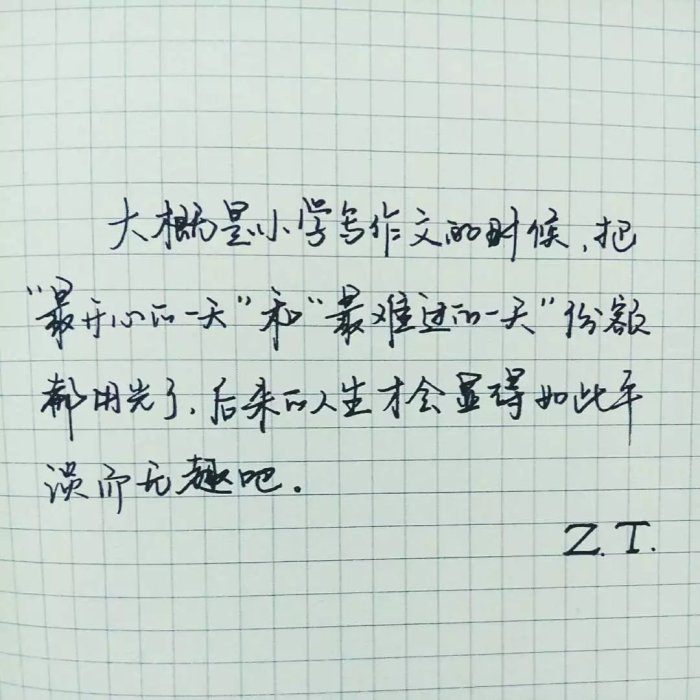 大概是小学写作文的时候，把
“最开心的一天”和“最难过的一天”份额
都用光了，后来的人生才会显得如此平
淡而无趣吧．
Z.T.